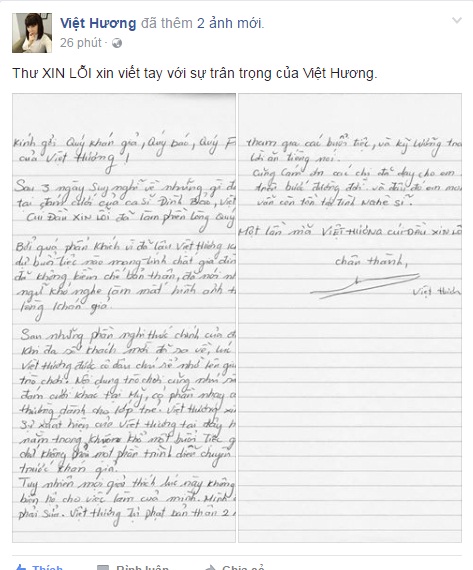 Việt Hương đã thêm 2 ảnh mới.
26 phút
Thư XIN LỖI xin viết tay với sự trân trọng của Việt Hương.
Kính gửi Quý khán giả, Quý báo, Quý F
của Việt Hương!
Sau 3 ngày suy nghĩ về những gì đ
tại đám cưới của ca sĩ Đình Bảo, Việ
Cúi Đầu XIN LỖI đã làm phiền lòng Quý
Bởi quá phấn khích vì đã lâu Việt Hương k
dự buổi tiệc nào mang tính chất gia đìn
đã không kềm chế bản thân, đã nói nh
ngữ khó nghe làm mất hình ảnh t
lòng khán giả.
Sau những phần nghi thức chính của đ
khi đa số khách mời đã ra về, lúc
Việt Hương được cô dâu chú rể nhờ lên
trò chơi. Nội dung trò chơi cũng như
đám cưới khác tại Mỹ, có phần nhạy
thường dành cho lớp trẻ. Việt Hương xi
Sự xuất hiện của Việt Hương tại đây
nằm trong khuôn khổ một buổi Tiệc g
chứ không phải một phần trình diễn chuyên
trước khán giả.
Tuy nhiên mọi giải thích lúc này không
biện hộ cho việc làm của mình. Mình
phải sửa. Việt Hương Tự phạt bản thân 2
tham gia các buổi tiệc, và kỹ lưỡng tro
lời ăn tiếng nói.
Cũng cám ơn các chị đã dạy cho em
trên bước đường đời. và
vẫn còn tồn tại Tình Nghệ sĩ.
Một lần nữa VIỆT HƯƠNG CÚI ĐẦU XIN LỖ
chân thành,
Việt Hươn
Thích Bình luận Chia sẻ